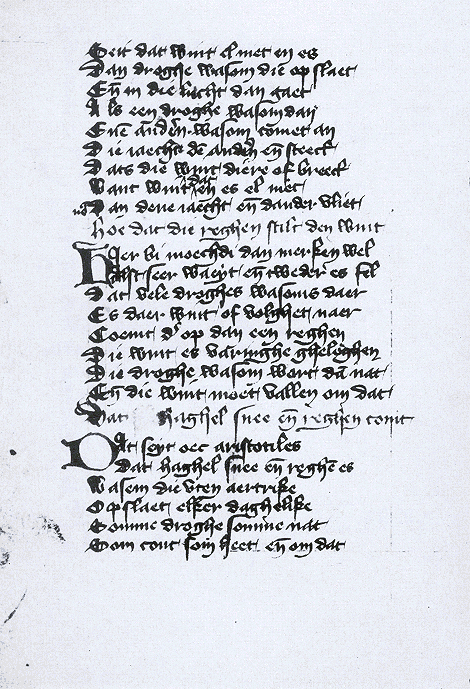 Seit dat wint el niet en es
Dan droghe wasom die op slaet
Eñ in die lucht dan gaet
Als een droghe wasom dan
Enē anderē wasom comet an
Die iaecht dē anderē eñ steect
Dats die wint diere of breect
Want wint dat en es el niet
Dan deue iaecht eñ dander vliet
Hoe dat die reghen stilt den wint
Hier bi moechdi dan merken wel
Alst seer waeyt eñ tweder es fel
Dat vele droghes wasoms daer
Es daer wint of volghet naer
Coemt dʼ op dan een reghen
Die wint es varinghe gheleghen
Die droghe wasom wort dā nat
Eñ die wint moet vallen om dat
Dat haghel snee eñ reghen comt
Dat seyt oec aristotiles
Dat haghel snee eñ reghē es
Wasem die vten aertrike
Op slaet elker daghelike
Somme droghe somme nat
Som cout som heet eñ om dat